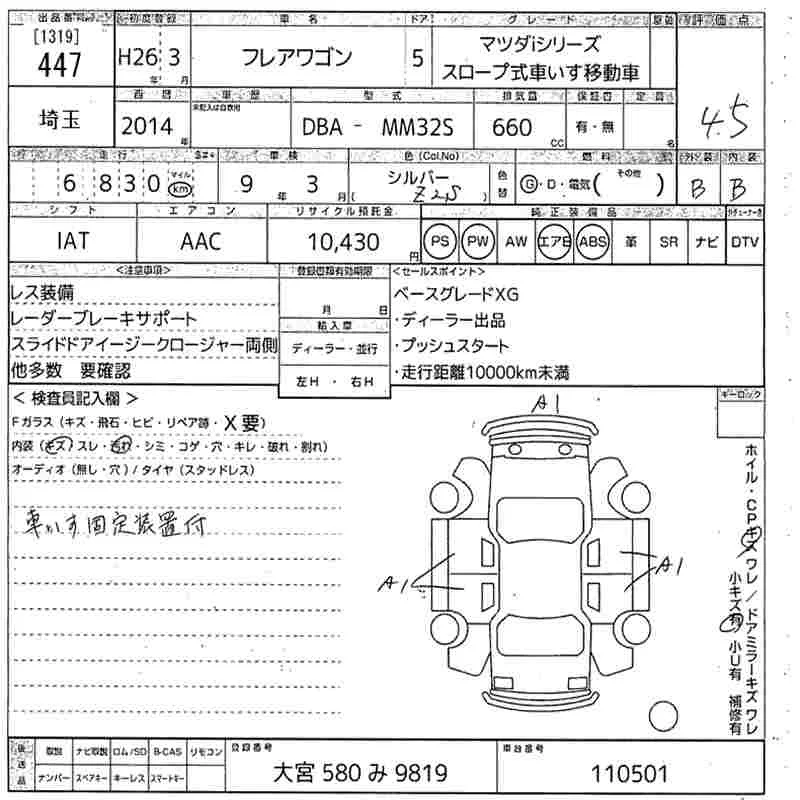 出品番号 初度登録 車名 ドア グレード 評価点
[1319]
447 H26年 3月 フレアワゴン 5 マツダiシリーズ
スロープ式車いす移動車
4.5
西暦 車歴 型式 排気量 保証書 定員
未記入は自家用
埼玉 2014年 DBA - MM32S 660cc 有・無 名
走行 車検 色(Col.No) 燃料 外装 内装
6830 マイル km 9年 3月 シルバー ( Z2S ) 色替 G・D・電気( その他 ) B B
シフト エアコン リサイクル預託金 純正装備品
IAT AAC 10,430円 PS PW AW エアB ABS 革 SR ナビ DTV
<注意事項> 登録書類有効期限 <セールスポイント>
レス装備 月 日 ベースグレードXG
レーダーブレーキサポート 輸入車 ・ディーラー出品
スライドドアイージークロージャー両側 ディーラー・並行 ・プッシュスタート
他多数 要確認 左H ・ 右H ・走行距離10000km未満
< 検査員記入欄 > キーロック
Fガラス(キズ・飛石・ヒビ・リペア跡・X要)
内装(キズ)スレ・汚れ・シミ・コゲ・穴・キレ・破れ・割れ)
オーディオ(無し・穴)/タイヤ(スタッドレス)
車いす固定装置付
A1
A1
A1
ホイル・CPキズ ワレ/ドアミラーキズ ワレ
小キズ有 小U有 補修有
後送品 取説 ナビ取説 ロム/SD B-CAS リモコン 登録番号 車台番号
ナンバー スペアキー キーレス スマートキー 大宮 580 み 9819 110501